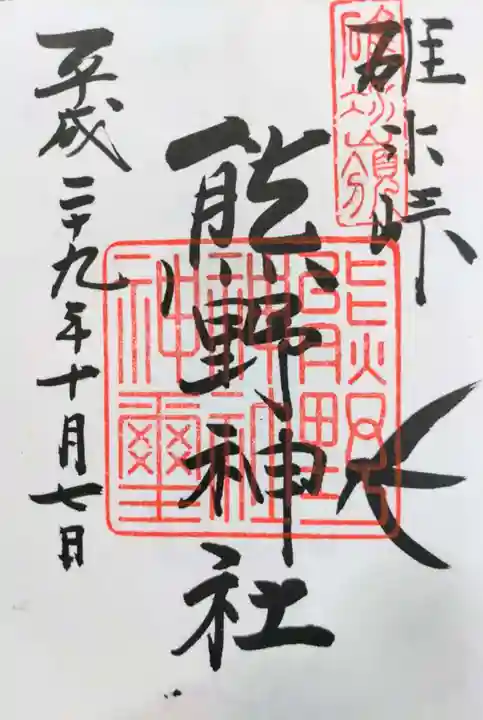 碓氷峠
碓氷嶺
熊野神社
熊野
神社
神璽
平成二十九年十月七日